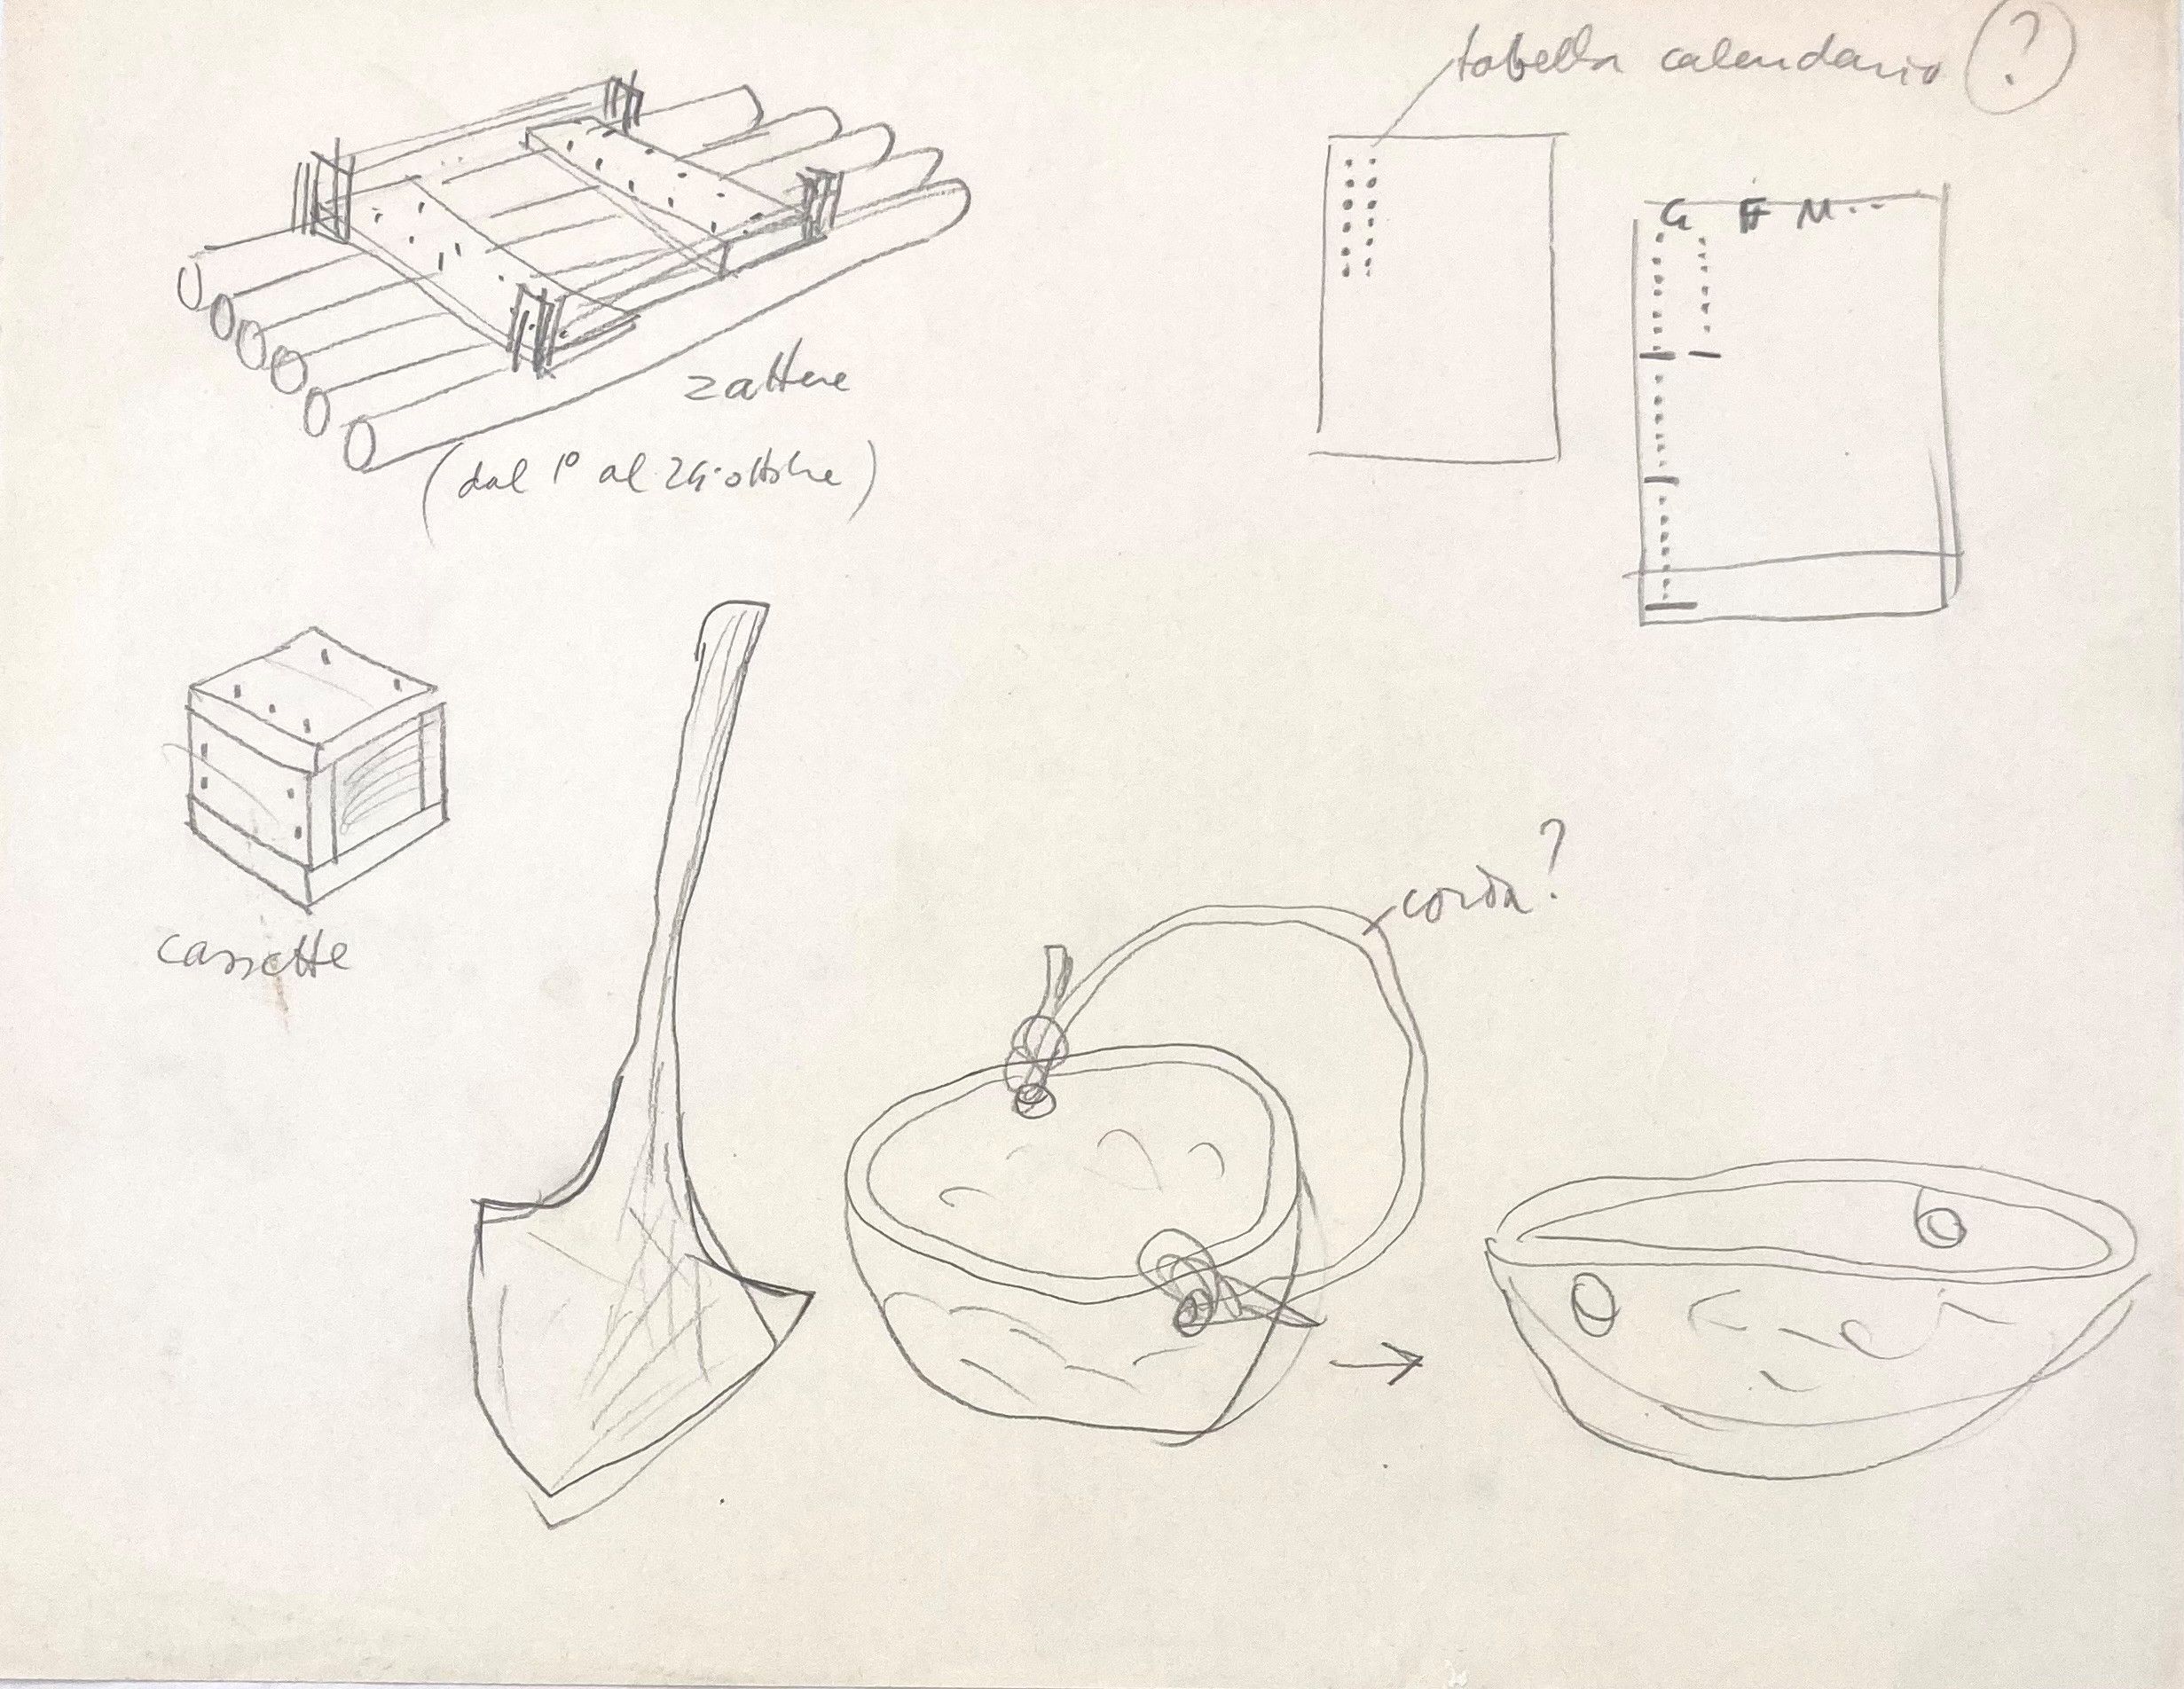 tabella calendario ?
G F M..
zattere
(dal 1° al 24 ottobre)
cassette
corda?